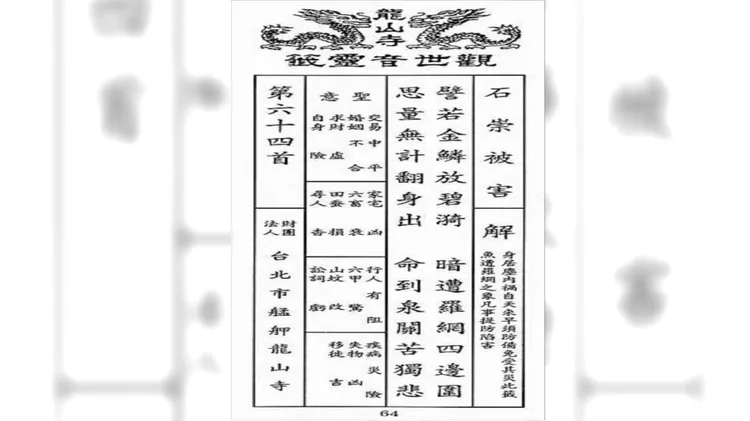 龍山寺
觀世音靈籤
石崇被害
解
身居塵內禍自天來早須防備免受其災此籤
魚遭羅網之象凡事提防陷害
譬若金鱗放碧漪 暗遭羅網四邊圍
思量無計翻身出 命到泉關苦獨悲
聖意
交易中平
婚姻不合
求財虛
自身險
家宅凶
六畜衰
田蠶損
尋人杳
行人有阻
六甲驚
山墳改
訟詞虧
疾病災險
失物凶
移徙吉
第六十四首
財團
法人
台北市艋舺龍山寺
64